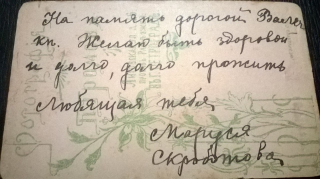 На память дорогой Валеч
кп. Желаю быть здоровой
и долго, долго прожить
Любящая тебя
Маруся
Скроботова